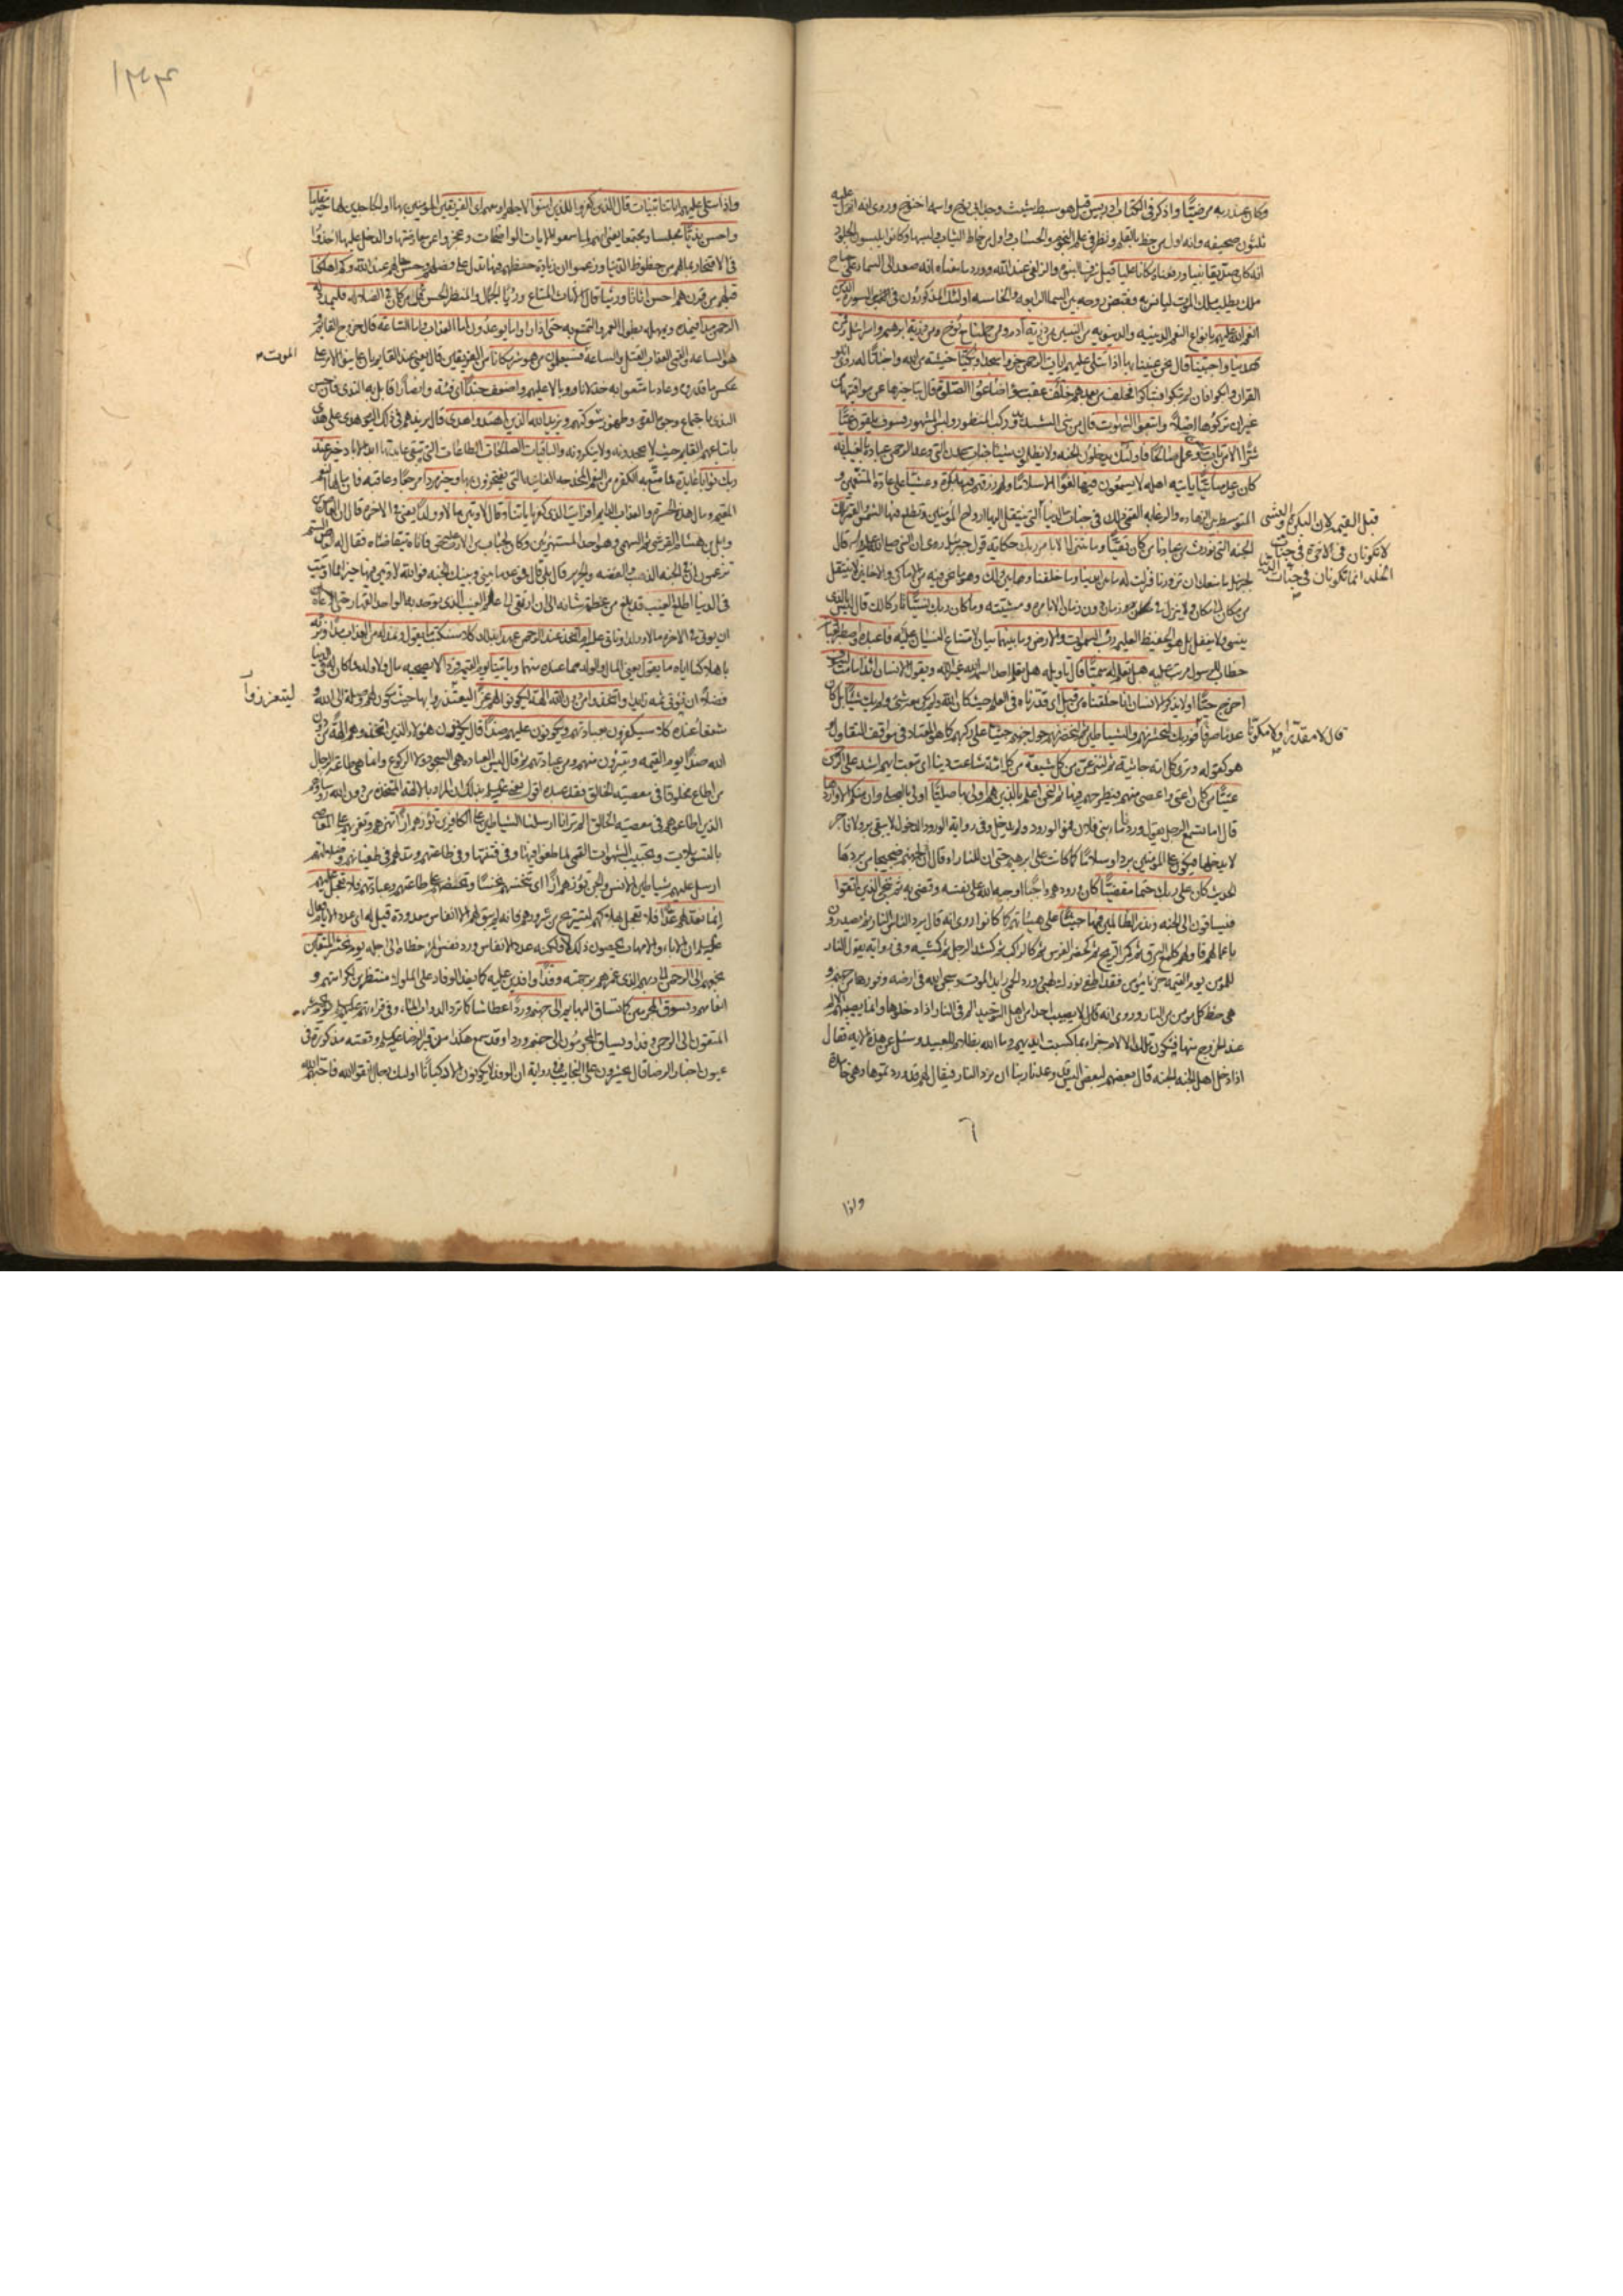 وكان عند ربه مرضيّا واذكر فى الكتاب ادريس قيل هو سبط شيث وجدّ ابى نوح واسمه اخنوخ وروى انه انزل عليه
ثلثون صحيفه وانه اول من خط بالقلم ونظر فى علم النجوم والحساب واول من خاط الثياب ولبسها وكانوا يلبسون الجلود
انه كان صدّيقا نبيا ورفعناه مكانا عليا قيل شرف النبوة والزلفى عند الله وورد ما معناه انه صعد الى السماء على جناح
ملك يطلب ملك الموت ليانس به فقبض روحه بين السماء الرابعه والخامسه اولئك المذكورون فى هذه السورة الذين
انعم الله عليهم بانواع النعم الدينيه والدنيويه من النبيين من ذرية ادم وممن حملنا مع نوح ومن ذرية ابرهيم واسرائيل وممن
هدينا واجتبينا قال نحن عنينا بها اذا تتلى عليهم ايات الرحمن خروا سجدا وبكيّا خشيته من الله واخباتا له روى اتلوا
القران وابكوا فان لم تبكوا فتباكوا فخلف من بعدهم خلف عقب سوء اضاعوا الصلوة قال بتاخيرها عن مواقيتها من
غير ان تركوها اصلا واتبعوا الشهوات قال من بنى الشديد وركب المنظور ولبس المشهور فسوف يلقون غيّا
شرا الا من تاب وامن وعمل صالحا فاولئك يدخلون الجنه ولا يظلمون شيئا جنات عدن التى وعد الرحمن عباده بالغيب انه
كان وعده ماتيّا ياتيه اهله لا يسمعون فيها لغوا الا سلاما ولهم رزقهم فيها بكرة وعشيّا على عادة المتنعمين و
المتوسط بين الزهاده والرغابه القمى ذلك فى جنات الدنيا التى ينتقل اليها ارواح المؤمنين وتطلع فيها الشمس والقمر تلك
الجنه التى نورث من عبادنا من كان تقيّا وما نتنزل الا بامر ربك حكاية قول جبرئيل روى ان النبى صلى الله عليه واله قال
لجبرئيل ما منعك ان تزورنا فنزلت له ما بين ايدينا وما خلفنا وما بين ذلك وهو ما نحن فيه من الاماكن والاحايين لا ننتقل
من مكان الى مكان ولا ننزل فى زمان دون زمان الا بامره ومشيّته وما كان ربك نسيّا تاركا لك قال ليس بالذى
ينسى ولا يغفل بل هو الحفيظ العليم رب السموات والارض وما بينهما بيان لامتناع النسيان عليه فاعبده واصطبر لعبادته
خطاب للرسول مرتب عليه هل تعلم له سميّا قال تاويله هل تعلم احدا اسمه الله غير الله ويقول الانسان ائذا ما مت لسوف
اخرج حيّا اولا يذكر الانسان انا خلقناه من قبل اى قدرناه فى العلم حيث كان الله ولم يكن معه شئ ولم يك شيئا بل كان
عدما صرفا فوربك لنحشرنهم والشياطين ثم لنحضرنهم حول جهنم جثيّا على ركبهم كما هو المعتاد فى مواقف التقاول
هو كقوله وترى كل امة جاثية ثم لننزعن من كل شيعة من كل امّة شاعت دينا ايهم اشد على الرحمن
عتيّا من كان اعتى واعصى منهم فنطرحهم فيها ثم لنحن اعلم بالذين هم اولى بها صليّا اولى بالصلى وان منكم الا واردها
قال اما تسمع الرجل يقول وردنا ماء بنى فلان فهو الورود ولم يدخل وفى رواية الورود الدخول لا يبقى بر ولا فاجر
الا يدخلها فيكون على المؤمنين بردا وسلاما كما كانت على ابرهيم حتى ان للنار او قال لجهنم ضجيجا من بردها
الحديث كان على ربك حتما مقضيّا كان ورودهم واجبا اوجبه الله على نفسه وقضى به ثم ننجى الذين اتقوا
فيساقون الى الجنه ونذر الظالمين فيها جثيّا على هيئاتهم كما كانوا روى انه قال يرد الناس النار ثم يصدرون
باعمالهم فاولهم كلمع البرق ثم كمر الريح ثم كحضر الفرس ثم كالراكب ثم كشد الرجل ثم كمشيه وفى رواية يقول النار
للمؤمن يوم القيمة جز يا مؤمن فقد اطفى نورك لهبى وورد الحمى رايد الموت وسجن الله فى ارضه وفورها من جهنم و
هى حظ كل مؤمن من النار وروى انه قال لا يصيب احدا من اهل التوحيد الم فى النار اذا دخلوها وانما يصيبهم الالم
عند الخروج منها فيكون تلك الالام جزاء بما كسبت ايديهم وما الله بظلام للعبيد وسئل عن هذه الاية فقال
اذا دخل اهل الجنه الجنه قال بعضهم لبعض اليس قد وعدنا ربنا ان نرد النار فيقال لهم قد وردتموها وهى خامدة
قبل القيمه لان البكره والعشى
لا تكونان فى الاخرة فى جنات
الخلد انما تكونان فى جنات الدنيا
قال لا مقدّرا ولا مكونا
واذا
١٣٠٣
واذا تتلى عليهم اياتنا بينات قال الذين كفروا للذين امنوا لاجلهم او معهم اى الفريقين المؤمنين بها او الجاحدين لها خير مقاما
واحسن نديّا مجلسا ومجتمعا يعنى انهم لما سمعوا الايات الواضحات وعجزوا عن معارضتها والدخل عليها اخذوا
فى الافتخار بما لهم من حظوظ الدنيا وزعموا ان زيادة حظهم فيها تدل على فضلهم وحسن حالهم عند الله وكم اهلكنا
قبلهم من قرن هم احسن اثاثا ورئيا قال الاثاث المتاع ورئيا الجمال والمنظر الحسن قل من كان فى الضلالة فليمدد له
الرحمن مدا فيمده ويمهله بطول العمر والتمتع به حتى اذا راوا ما يوعدون اما العذاب واما الساعة قال خروج القائم و
هو الساعة والقمى العذاب القتل والساعة الموت فسيعلمون من هو شر مكانا من الفريقين قال يعنى عند القايم بان عاينوا الامر على
عكس ما قدروه وعاد ما متعوا به خذلانا ووبالا عليهم واضعف جندا اى فئة وانصارا قابل به الندى فان حسن
الندى باجتماع وجوه القوم وظهور شوكتهم ويزيد الله الذين اهتدوا هدى قال يزيدهم فى ذلك اليوم هدى على هدى
باتباعهم القايم حيث لا يجحدونه ولا ينكرونه والباقيات الصالحات الطاعات التى تبقى عايدتها ابد الاباد خير عند
ربك ثوابا عايدة مما متّع به الكفره من النعم المخدجه الفانيه التى يفتخرون بها وخير مردا مرجعا وعاقبه فان مالها النعيم
المقيم ومال هذه الحسرة والعذاب الدايم افرايت الذى كفر باياتنا وقال لاوتين مالا وولدا يعنى فى الاخرة قال ان العاص بن
وايل بن هشام القرشى ثم السهمى وهو احد المستهزئين وكان لخباب بن الارت على العاص حق فاتاه يتقاضاه فقال له العاص الستم
تزعمون ان فى الجنه الذهب والفضه والحرير قال بلى قال فموعد ما بينى وبينك الجنه فوالله لاوتين فيها خيرا مما اوتيت
فى الدنيا اطلع الغيب قد بلغ من عظمة شانه الى ان ارتقى الى علم الغيب الذى توحد به الواحد القهار حتى ادعى
ان يوتى فى الاخرة مالا وولدا وتالى عليه ام اتخذ عند الرحمن عهدا بذلك كلا سنكتب ما يقول ونمد له من العذاب مدا ونرثه
باهلاكنا اياه ما يقول يعنى المال والولد مما عنده منهما وياتينا يوم القيمه فردا لا يصحبه مال ولا ولد مما كان له فى الدنيا
فضلا ان يؤتى ثمه زايدا واتخذوا من دون الله الهة ليكونوا لهم عزّا ليتعززوا بها حيث يكون لهم وصلة الى الله و
شفعاء عنده كلا سيكفرون بعبادتهم ويكونون عليهم ضدا قال يكونون هؤلاء الذين اتخذوهم الهة من دون
الله ضدا يوم القيمه ويتبرؤن منهم ومن عبادتهم ثم قال ليس العباده هى السجود ولا الركوع وانما هى طاعة الرجال
من اطاع مخلوقا فى معصية الخالق فقد عبده
الذين اطاعوهم فى معصية الخالق الم تر انا ارسلنا الشياطين على الكافرين تؤزهم ازّا تهزهم وتغريهم على المعاصى
بالتسويلات وتحبيب الشهوات القمى لما طغوا فيها وفى فتنتها وفى طاعتهم ومد لهم فى طغيانهم وضلالتهم
ارسل عليهم شياطين الانس والجن تؤزهم ازّا اى تنخسهم نخسا وتحضهم على طاعتهم وعبادتهم فلا تعجل عليهم
انما نعد لهم عدّا فلا تعجل بهلاكهم لتستريح من شرورهم فانه لم يبق لهم الا انفاس معدودة قيل له اى عدد الايام قال
ان الاباء والامهات يحصون ذلك لا ولكنه عدد الانفاس وورد نفس المرء خطاه الى اجله يوم نحشر المتقين
نجمعهم الى الرحمن الى ربهم الذى غمرهم برحمته وفدا وافدين عليه كما يفد الوفاد على الملوك منتظرين لكرامتهم و
انعامهم ونسوق المجرمين كما تساق البهايم الى جهنم وردا عطاشا كما ترد الدواب الماء وفى قراءتهم يوم يحشر
المتقون الى الرحمن وفدا ويساق المجرمون الى جهنم وردا وقد سمع هكذا من قبر الرضا عليه السلام وقصته مذكورة فى
عيون اخبار الرضا قال يحشرون على النجايب وفى رواية ان الوفد لا يكونون الا ركبانا اولئك رجال اتقوا الله فاحبهم الله
الموت
ليتعززوا